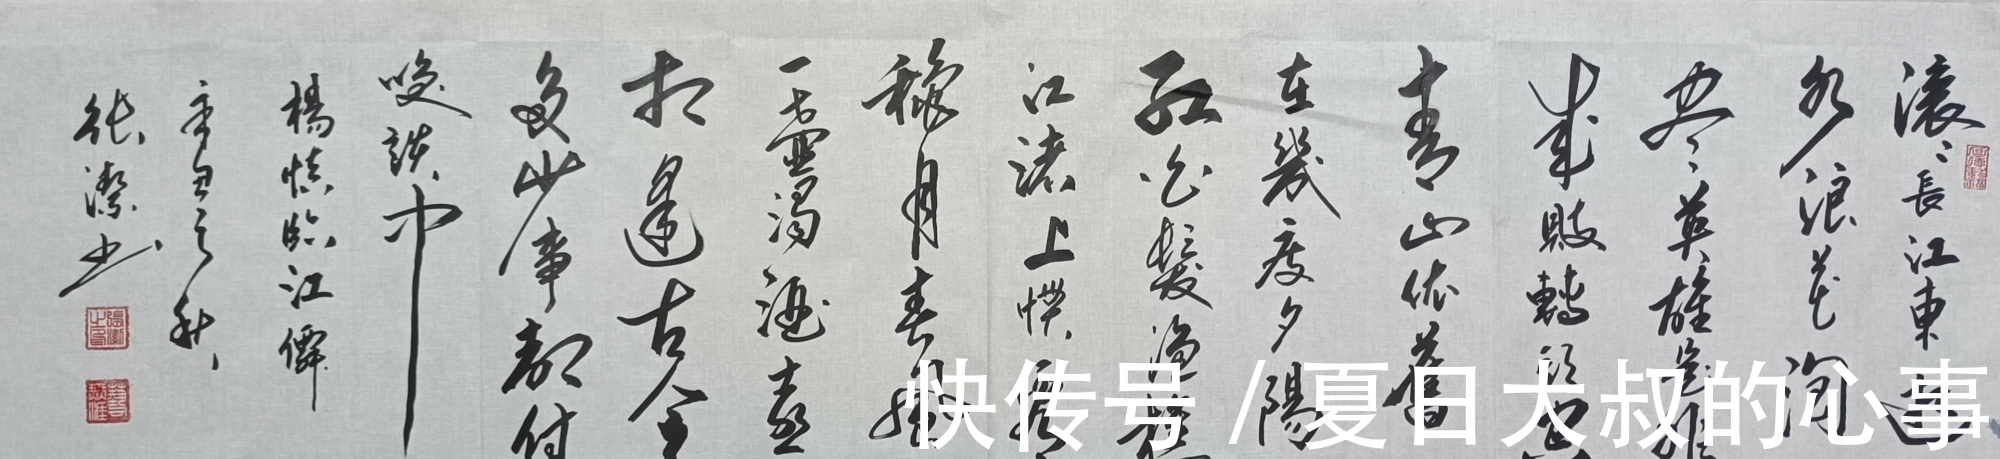 滚〻長江東逝
水浪花淘
尽〻英雄是非
成敗轉頭空
青山依舊
在幾度夕陽
紅白髮渔樵
江渚上惯看
秋月春風
一壶濁酒喜
相逢古今
多少事都付
笑談中
楊慎臨江僊
辛丑之秋
张潔书
快传号/夏日大叔的心事